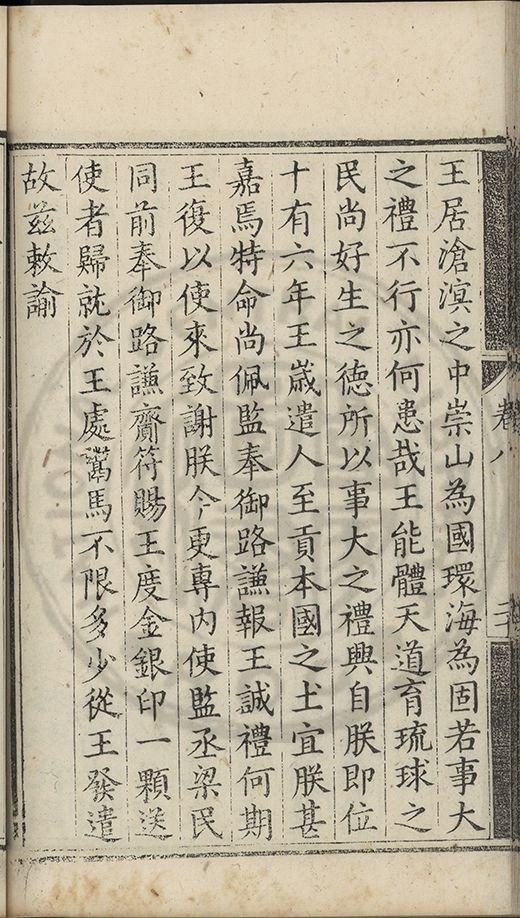 王居滄溟之中崇山為國環海為固若事大
之禮不行亦何患哉王能體天道育琉球之
民尚好生之德所以事大之禮興自朕即位
十有六年王歲遣人至貢本國之土宜朕甚
嘉焉特命尚佩監奉御路謙報王誠禮何期
王復以使來致謝朕今更專內使監丞梁民
同前奉御路謙齎符賜王度金銀印一顆送
使者歸就於王處鬻馬不限多少從王發遣
故茲敕諭
卷八